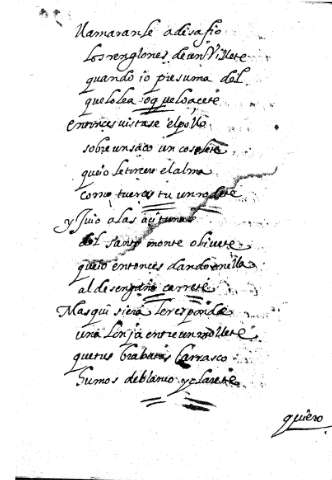 llamaranse a desafio
los renglones de un Villete
quando io presuma del
que lo lea o q̃ lo acete
entonces vistase el pollo
sobre un saco un cosolete
que io le tirere el alma
como tueras tu un
y Juio a las
del santo monte olivete
que io entonces dando
al desengaño carrete
Mas qui siera le responda
una lonja entre un mollete
que tus brabatas Carrasco
humos de blanco y clarete
quiero